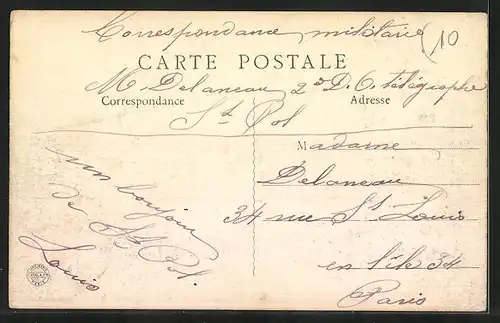 Correspondance militaire
10
CARTE POSTALE
M Delaneau 2e D. C. télégraphe
Correspondance
Adresse
St Pol
Madame
Delaneau
34 rue St Louis
en l'ile 34
Paris
un bonjour
de St Pol.
Louis